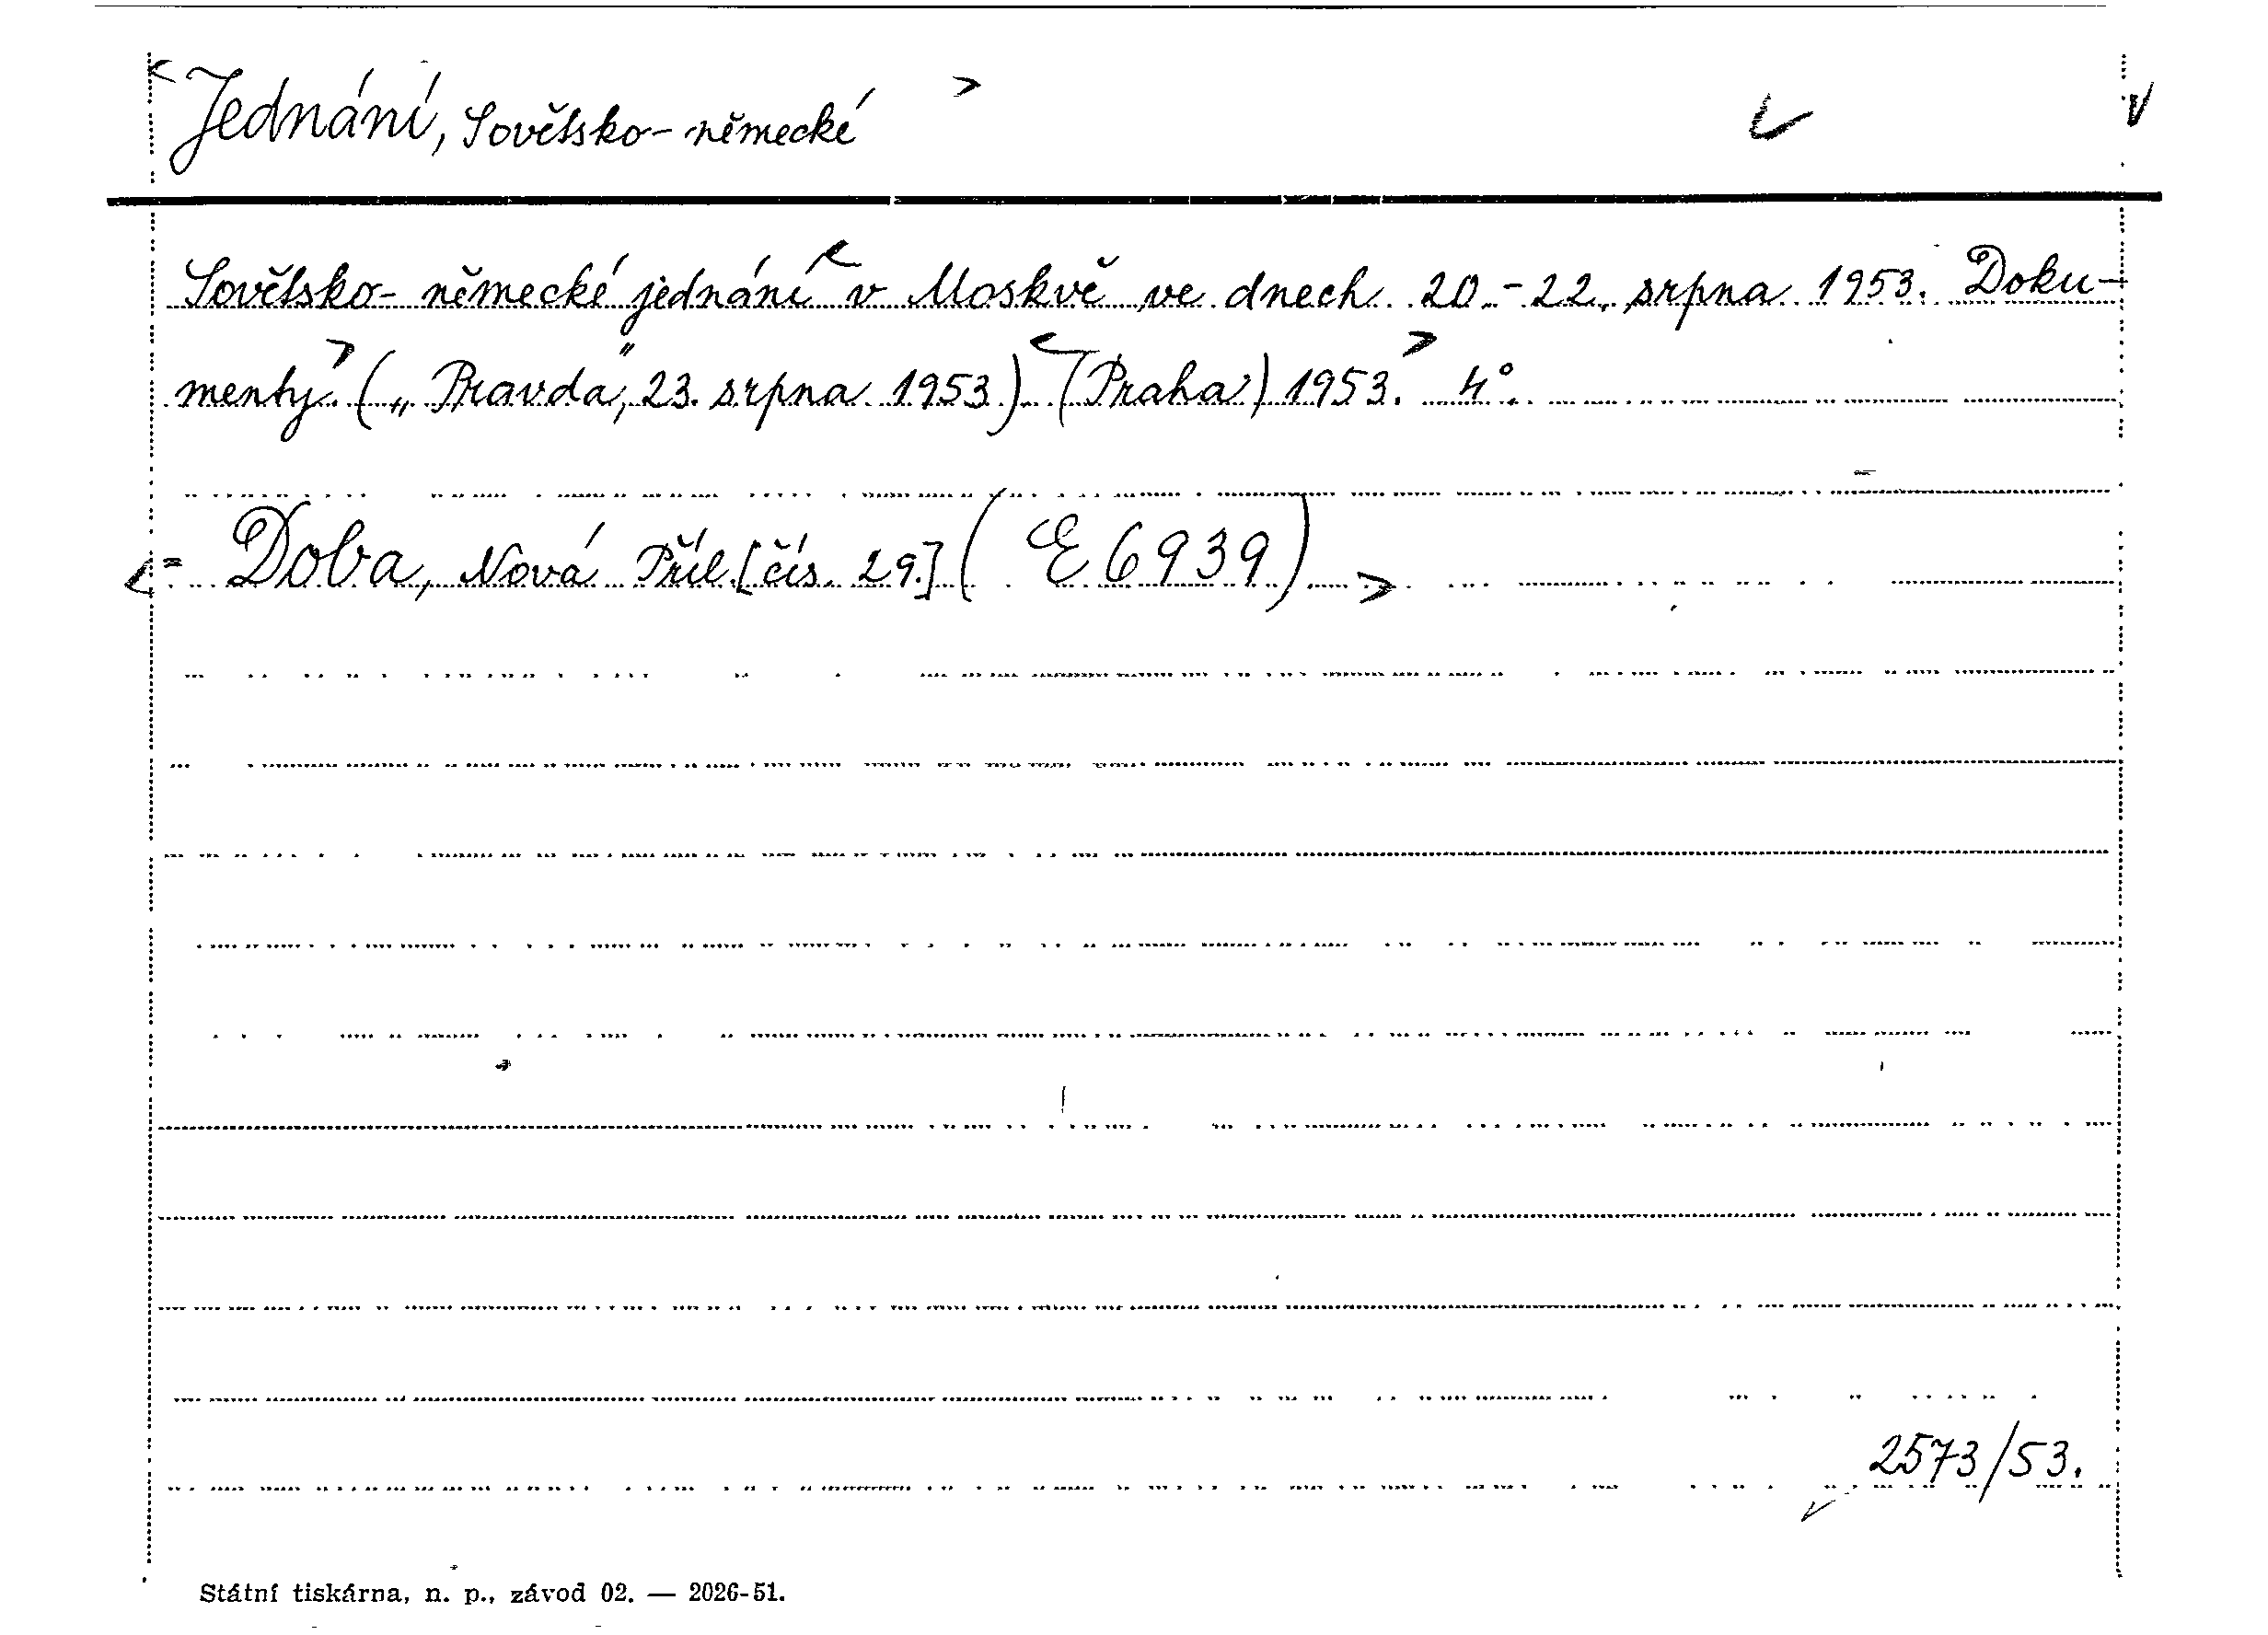 <Jednání, Sovětsko-německé>
Sovětsko-německé jednání < v Moskvě ve dnech 20.-22. srpna 1953. Doku-
menty.> („Pravda", 23. srpna 1953) <(Praha) 1953.> 4°.
<= Doba, Nová Příl. [čís. 29.] (E 6939)>
2573/53.
Státní tiskárna, n. p., závod 02. — 2026-51.